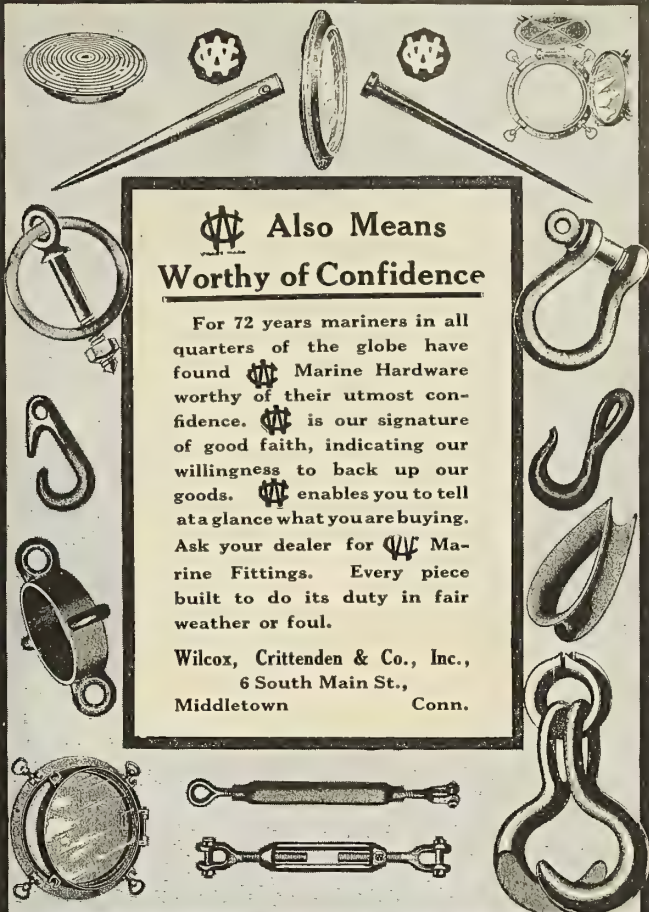 WC
WC
WC Also Means
TRADE MARK
Worthy of Confidence
For 72 years mariners in all
quarters of the globe have
found WC Marine Hardware
worthy of their utmost con-
fidence. WC is our signature
of good faith, indicating our
willingness to back up our
goods. WC enables you to tell
at a glance what you are buying.
Ask your dealer for WC Ma-
rine Fittings. Every piece
built to do its duty in fair
weather or foul.
Wilcox, Crittenden & Co., Inc.,
6 South Main St.,
Middletown Conn.